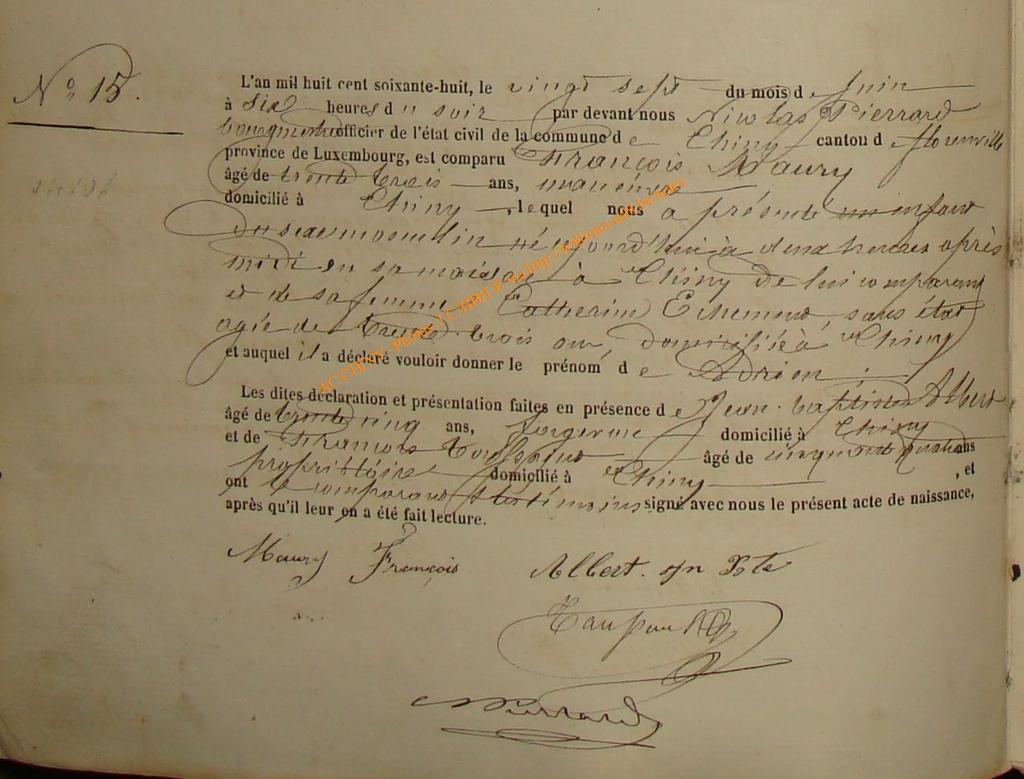 No 15.
L'an mil huit cent soixante-huit, le vingt sept du mois de Juin
à six heures du soir par devant nous Nicolas Pierrard
bourgmestre officier de l'état civil de la commune de Chiny canton de florenville
province de Luxembourg, est comparu François Maury
âgé de trente trois ans, manœuvre
domicilié à Chiny, lequel nous a présenté un enfant
du sexe masculin né aujourd'hui à deux heures après
midi en sa maison à Chiny de lui comparant
et de sa femme Catherine sans état
agée de trente trois ans, domiciliée à Chiny
et auquel il a déclaré vouloir donner le prénom de Adrien.
Les dites déclaration et présentation faites en présence de Jean-baptiste Albert
âgé de trente cinq ans, forgeron domicilié à Chiny
et de François âgé de cinquante quatre ans
propriétaire domicilié à Chiny, et
ont le comparant & les témoins signé avec nous le présent acte de naissance,
après qu'il leur en a été fait lecture.
Maury François
Albert Jn Bte
Pierrard